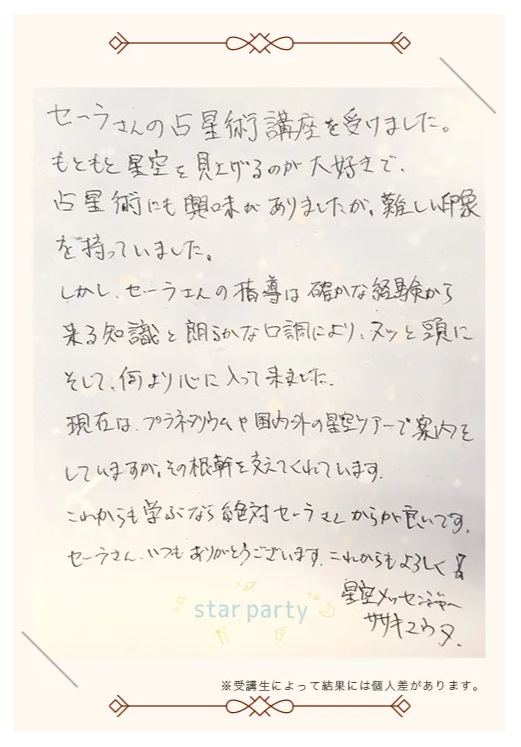 セーラさんの占星術講座を受けました。
もともと星空を見上げるのが大好きで、
占星術にも興味がありましたが、難しい印象
を持っていました。
しかし、セーラさんの指導は確かな経験から
来る知識と朗らかな口調により、スッと頭に
そして、何より心に入って来ました。
現在は、プラネタリウムや国内外の星空ツアーで案内を
していますが、その根幹を支えてくれています。
これからも学ぶなら絶対セーラさんからが良いです。
セーラさん、いつもありがとうございます。これからもよろしく
星空メッセンジャー
ササキユウタ.
star party
※受講生によって結果には個人差があります。